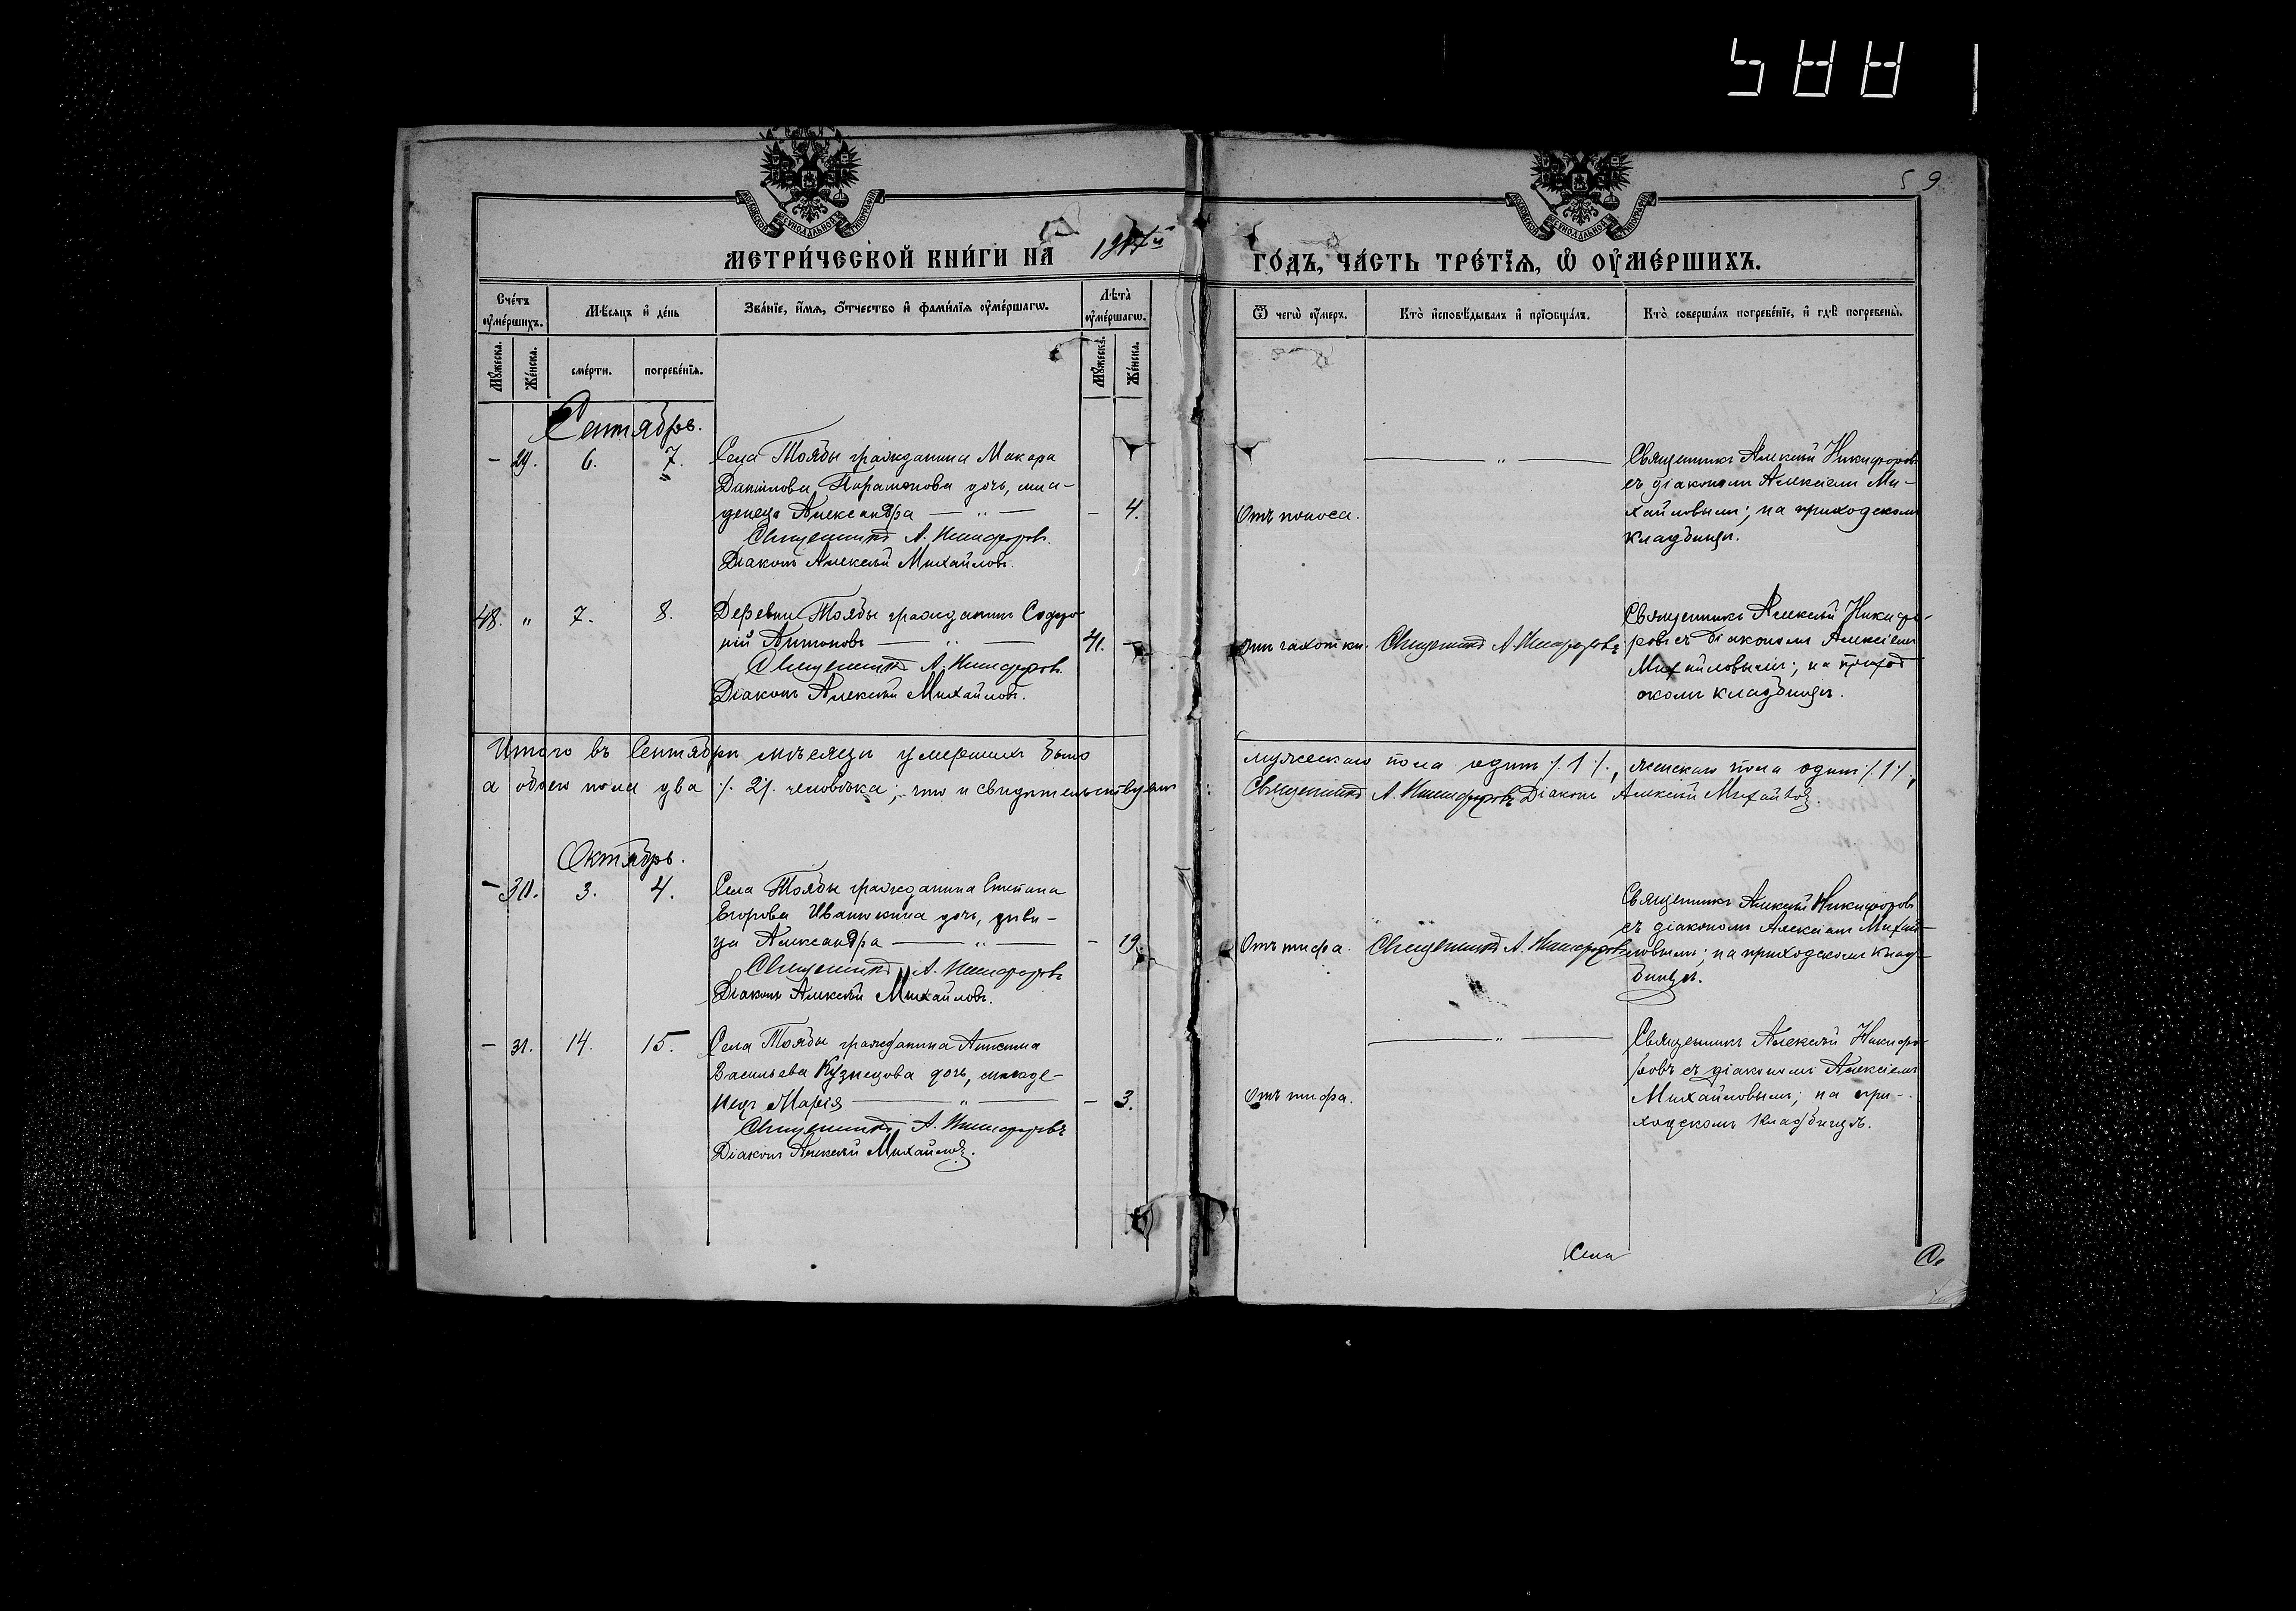 588
59
МЕТРИ́ЧЕСКОЙ КНИ́ГИ НА 1917й ГО́ДЪ, ЧА́СТЬ ТРЕ́ТІѦ, Ѡ ОУМЕ́РШИХЪ.
Сче́тъ оуме́ршихъ.
Мѣ́сяцъ и де́нь
Зва́нїе, и́мя, о́тчество и фами́лїя оуме́ршагѡ.
Лѣта̀ оуме́ршагѡ.
Ѿ чегѡ̀ оу́меръ.
Кто̀ исповѣ́дывалъ и прїѡбща́лъ.
Кто̀ соверша́лъ погребе́нїе, и гдѣ̀ погребены̀.
Му́жеска.
Же́нска.
сме́рти.
погребе́нїя.
Му́жеска.
Же́нска.
Сентябрь.
- 29. 6. 7.
Села Тоябы гражданина Макара
Данилова Парамонова дочь, мла-
денецъ Александра — " — - 4.
Священникъ А. Никифоровъ.
Діаконъ Алексѣй Михайловъ.
Отъ поноса.
— " —
Священникъ Алексѣй Никифоровъ
съ діакономъ Алексіемъ Ми-
хайловымъ; на приходскомъ
кладбищѣ.
48. " 7. 8.
Деревни Тоябы гражданинъ Софро-
ній Антоновъ — " — 41. -
Священникъ А. Никифоровъ.
Діаконъ Алексѣй Михайловъ.
отъ чахотки.
Священникъ А. Никифоровъ
Священникъ Алексѣй Никифо-
ровъ съ діакономъ Алексіемъ
Михайловымъ; на приход
скомъ кладбищѣ.
Итого въ Сентябрѣ мѣсяцѣ умершихъ было мужескаго пола одинъ /.1/., женскаго пола одинъ /.1/.,
а обоего пола два /. 2/. человѣка; что и свидѣтельствуемъ: Священникъ А. Никифоровъ Діаконъ Алексѣй Михайловъ.
Октябрь.
- 30. 3. 4.
Села Тоябы гражданина Степана
Егорова Иванюкина дочь, дѣви-
ца Александра — " — - 19.
Священникъ А. Никифоровъ
Діаконъ Алексѣй Михайловъ.
Отъ тифа.
Священникъ А. Никифоровъ
Священникъ Алексѣй Никифоровъ
съ діакономъ Алексіемъ Михай-
ловымъ; на приходскомъ клад-
бищѣ.
- 31. 14. 15.
Села Тоябы гражданина Анисима
Васильева Кузнецова дочь, младе-
нецъ Марія — " — - 3.
Священникъ А. Никифоровъ
Діаконъ Алексѣй Михайловъ.
Отъ тифа.
— " —
Священникъ Алексѣй Никифо-
ровъ съ діакономъ Алексіемъ
Михайловымъ; на при-
ходскомъ кладбищѣ.
Села